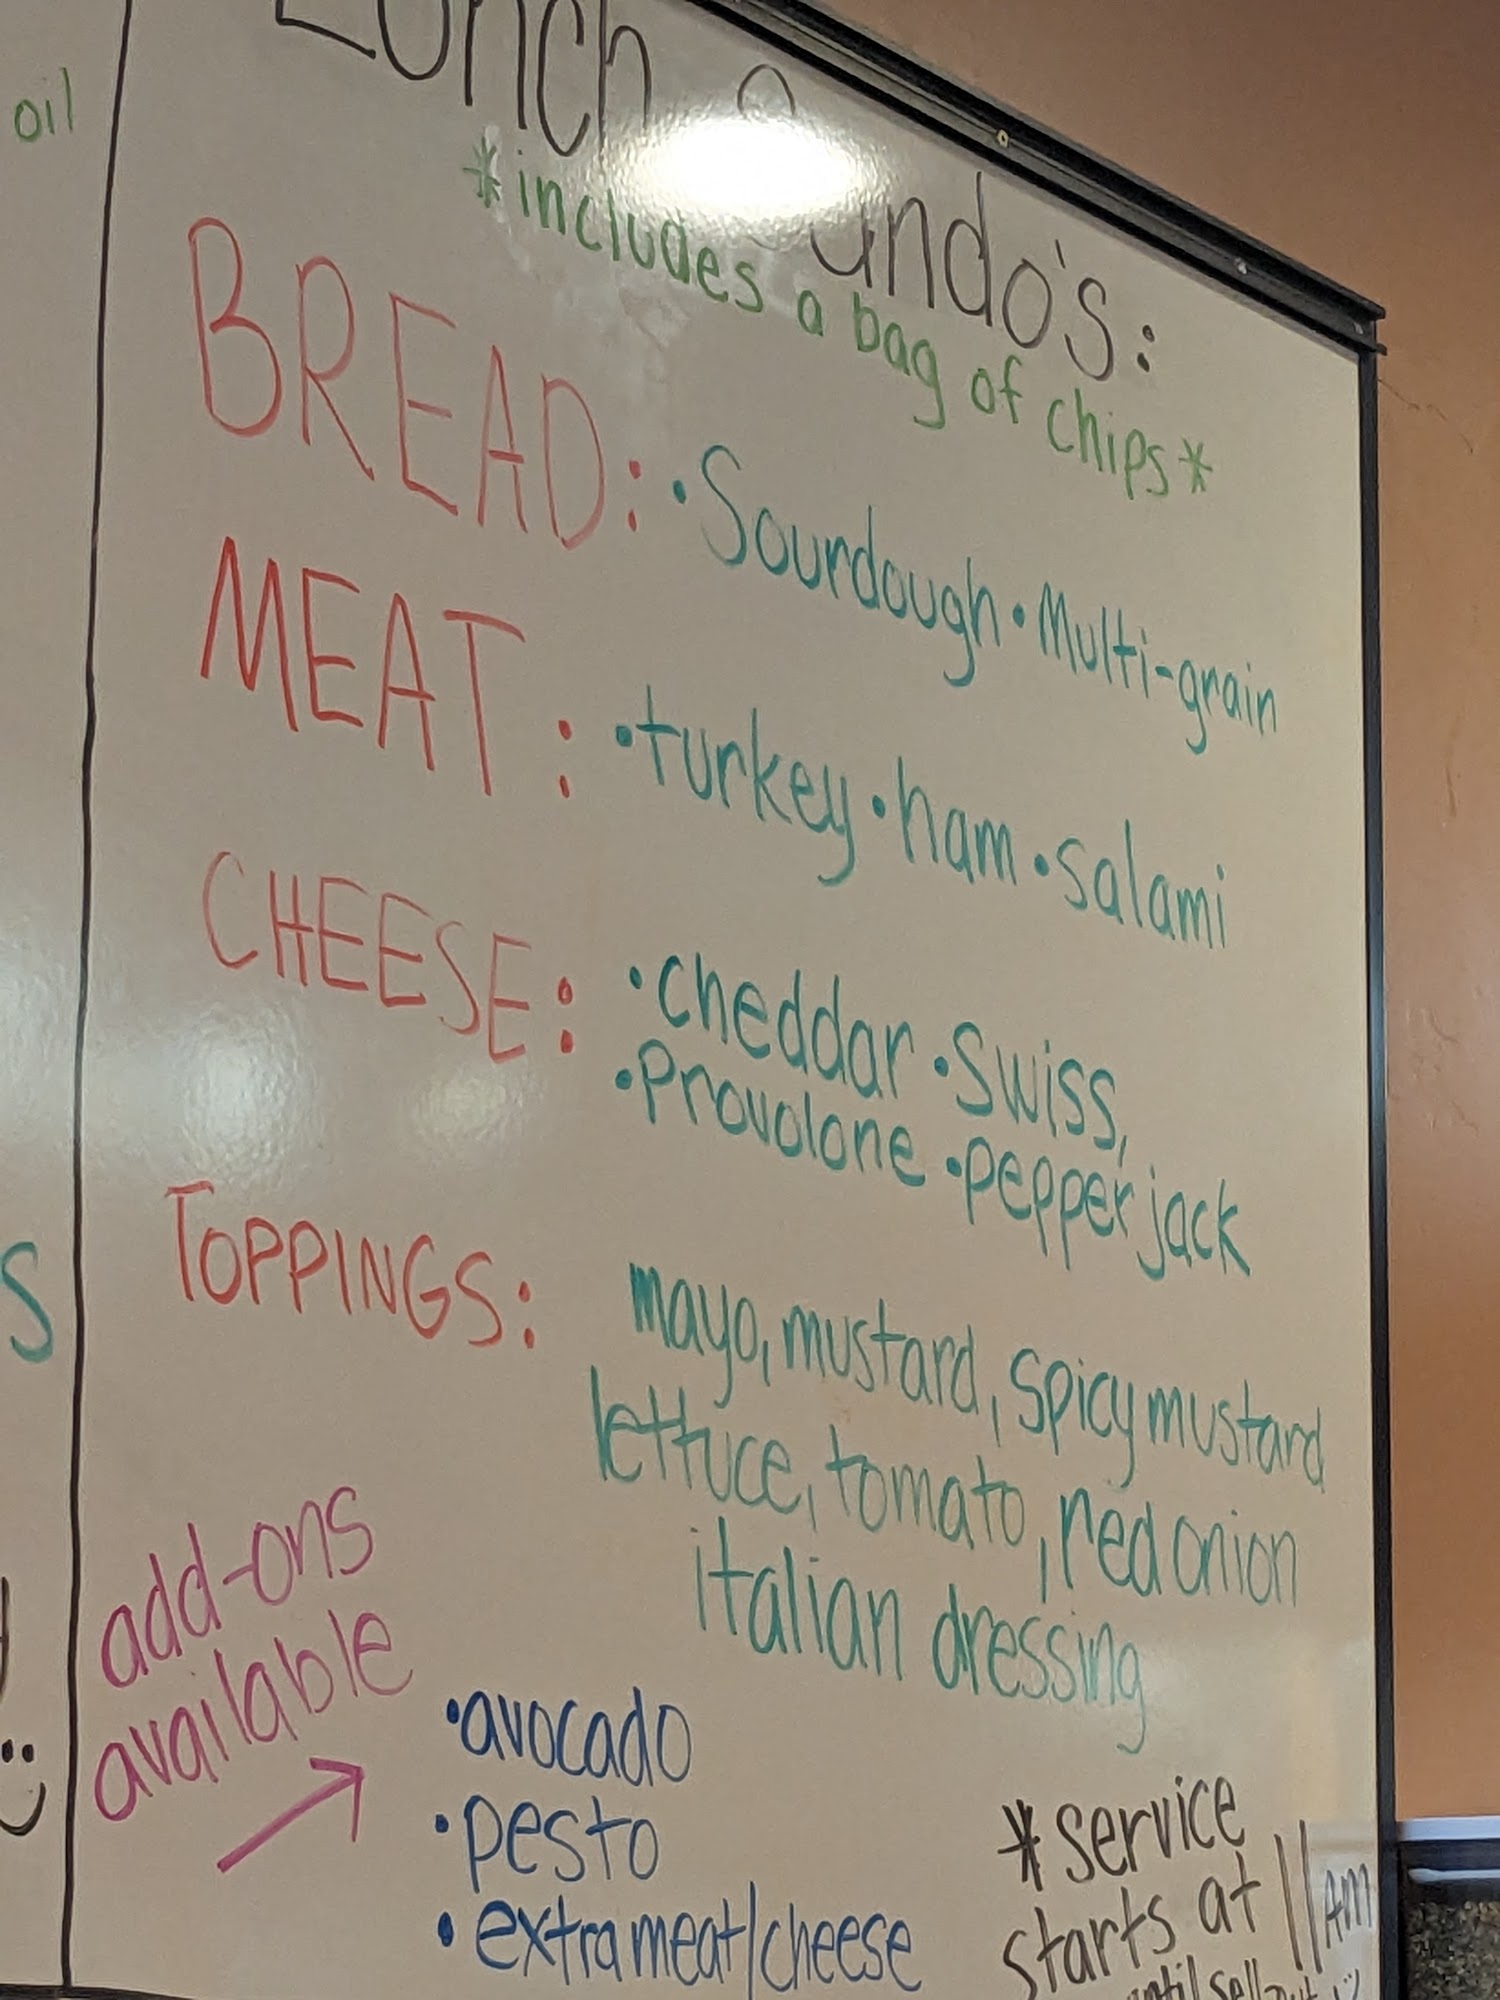 oil
Lunch
ando's:
*includes a bag of chips*
BREAD: •Sourdough •Multi-grain
MEAT: •turkey •ham •salami
CHEESE: •cheddar •Swiss,
•Provolone •pepper jack
TOPPINGS: mayo, mustard, spicy mustard
lettuce, tomato, red onion
italian dressing
add-ons
available
•avocado
•pesto
•extra meat/cheese
*service
starts at 11AM
until sellout :)